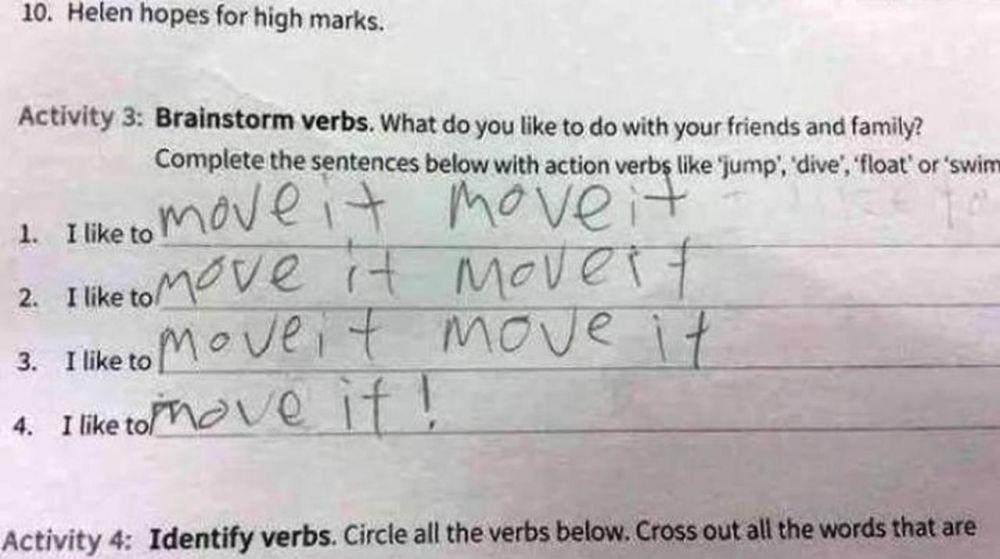 10. Helen hopes for high marks.
Activity 3: Brainstorm verbs. What do you like to do with your friends and family?
Complete the sentences below with action verbs like 'jump', 'dive', 'float' or 'swim
1. I like to move it move it
2. I like to move it move it
3. I like to move it move it
4. I like to move it!
Activity 4: Identify verbs. Circle all the verbs below. Cross out all the words that are